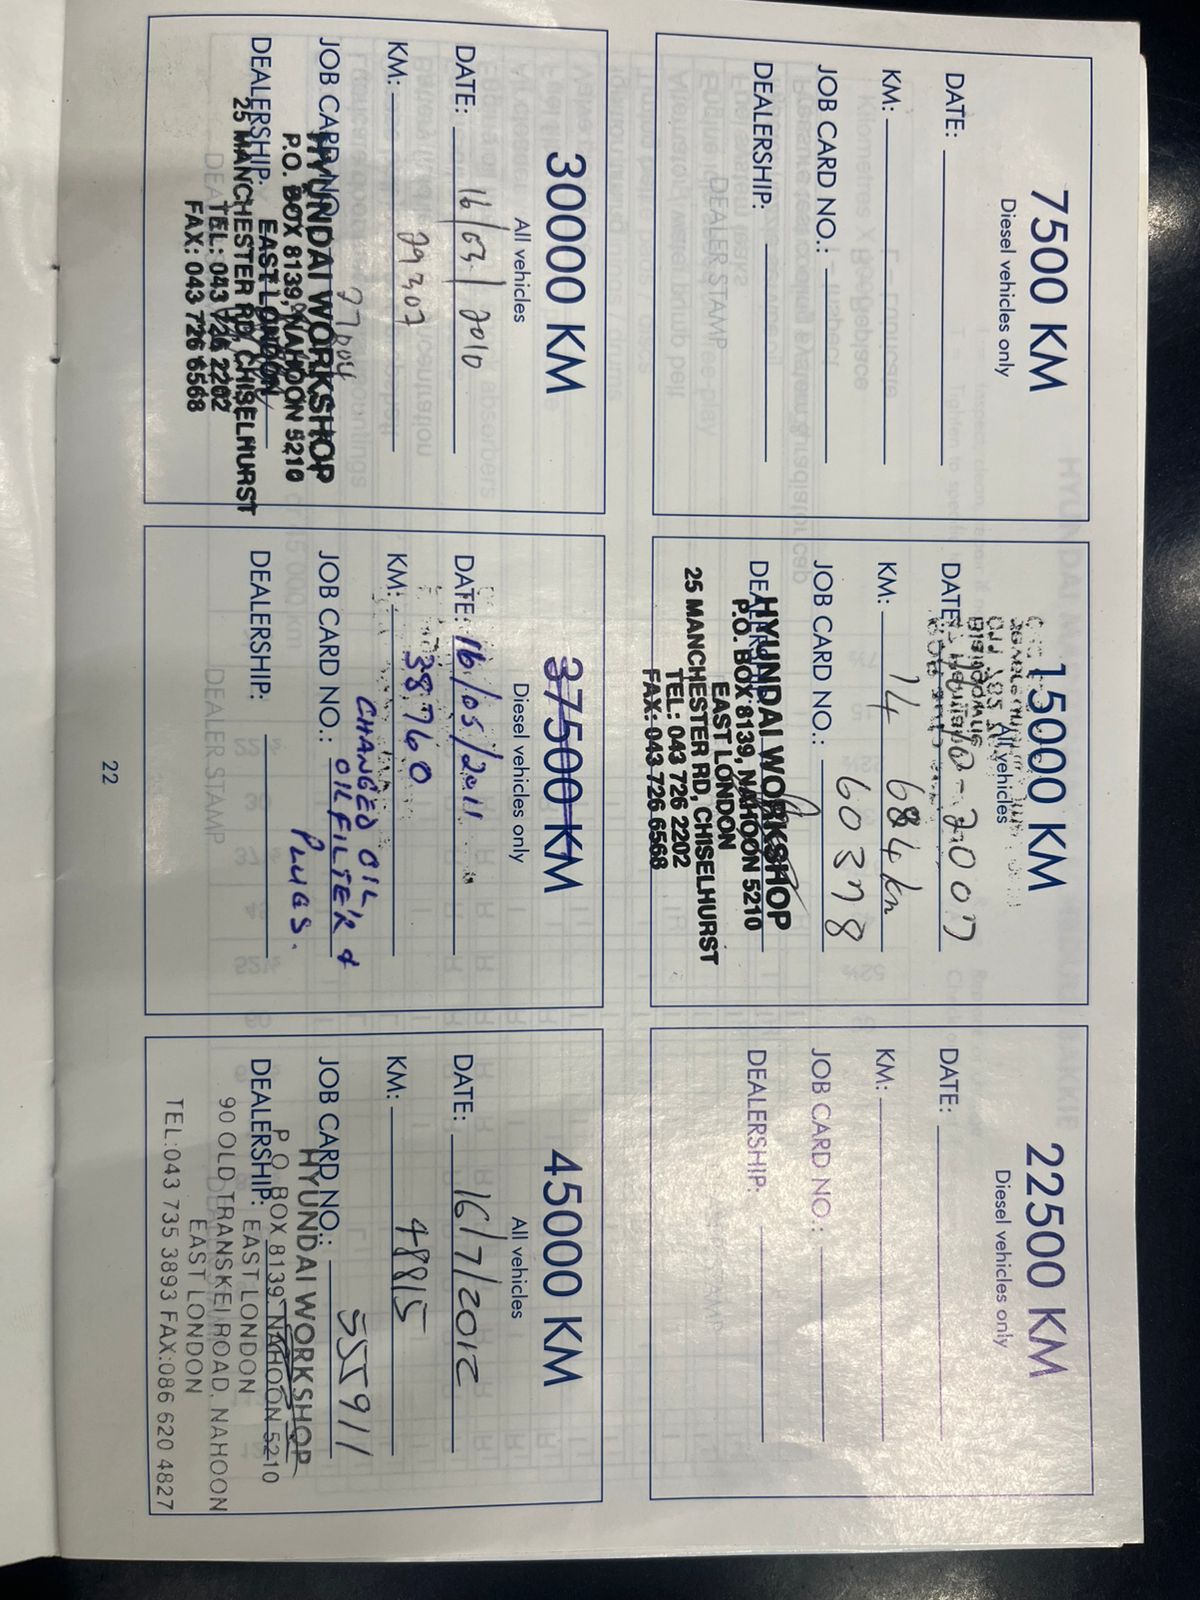 7500 KM
Diesel vehicles only
DATE:
KM:
JOB CARD NO.:
DEALERSHIP:
15000 KM
All vehicles
DATE: 2007
KM: 14 684 km
JOB CARD NO.: 60378
DEALERSHIP:
HYUNDAI WORKSHOP
P.O. BOX 8139, NAHOON 5210
EAST LONDON
25 MANCHESTER RD, CHISELHURST
TEL: 043 726 2202
FAX: 043 726 6568
22500 KM
Diesel vehicles only
DATE:
KM:
JOB CARD NO.:
DEALERSHIP:
30000 KM
All vehicles
DATE: 16/03/2010
KM: 29307
JOB CARD NO.:
DEALERSHIP:
HYUNDAI WORKSHOP
P.O. BOX 8139, NAHOON 5210
EAST LONDON
25 MANCHESTER RD, CHISELHURST
TEL: 043 726 2202
FAX: 043 726 6568
37500 KM
Diesel vehicles only
DATE: 16/05/2011
KM: 38760
CHANGED OIL,
JOB CARD NO.: OIL FILTER &
PLUGS.
DEALERSHIP:
45000 KM
All vehicles
DATE: 16/7/2012
KM: 48815
JOB CARD NO.: 55911
HYUNDAI WORKSHOP
P O BOX 8139 NAHOON 5210
DEALERSHIP: EAST LONDON
90 OLD TRANSKEI ROAD, NAHOON
EAST LONDON
TEL:043 735 3893 FAX:086 620 4827
22